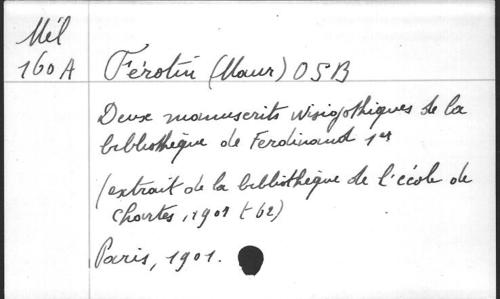 Mél
160A Férotin (Maur) OSB
Deux manuscrits wisigothiques de la
bibliothèque de Ferdinand 1er
(extrait de la bibliothèque de l'école de
Chartes, 1901 t 62)
Paris, 1901.